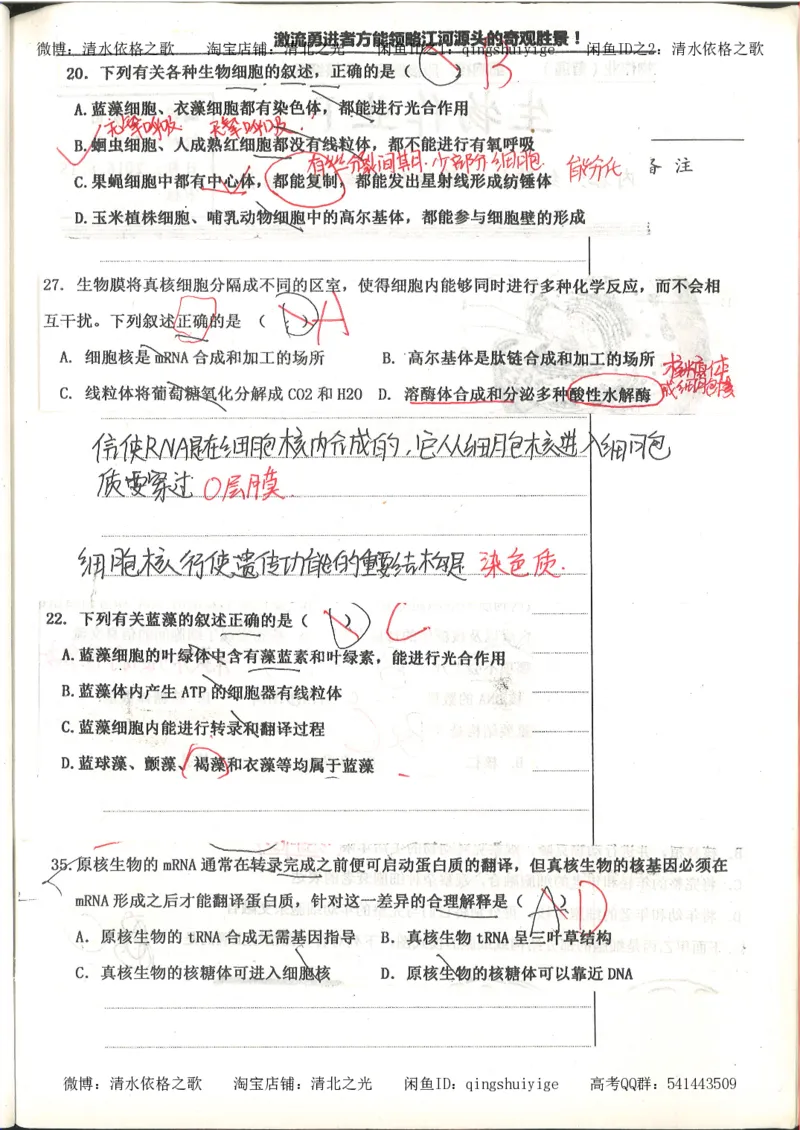 激流勇进者方能领略江河源头的奇观胜景！
微博：清水依格之歌 淘宝店铺：清北之光 闲鱼ID之1：qingshuiyige 闲鱼ID之2：清水依格之歌
20．下列有关各种生物细胞的叙述，正确的是（ ） B
A.蓝藻细胞、衣藻细胞都有染色体，都能进行光合作用
无氧呼吸 无氧呼吸
B.蛔虫细胞、人成熟红细胞都没有线粒体，都不能进行有氧呼吸
有丝分裂间期 少部分细胞 能分化
C.果蝇细胞中都有中心体，都能复制，都能发出星射线形成纺锤体
备 注
D.玉米植株细胞、哺乳动物细胞中的高尔基体，都能参与细胞壁的形成
27．生物膜将真核细胞分隔成不同的区室，使得细胞内能够同时进行多种化学反应，而不会相
互干扰。下列叙述正确的是 （ ） A
A. 细胞核是 mRNA 合成和加工的场所 B. 高尔基体是肽链合成和加工的场所
核糖体
C. 线粒体将葡萄糖氧化分解成 CO2 和 H2O D. 溶酶体合成和分泌多种酸性水解酶
信使RNA是在细胞核内合成的，它从细胞核进入细胞
质要穿过 0层膜
细胞核行使遗传功能的重要结构是 染色质.
22．下列有关蓝藻的叙述正确的是（ D ） C
A.蓝藻细胞的叶绿体中含有藻蓝素和叶绿素，能进行光合作用
B.蓝藻体内产生 ATP 的细胞器有线粒体
C.蓝藻细胞内能进行转录和翻译过程
D.蓝球藻、颤藻、褐藻和衣藻等均属于蓝藻
35.原核生物的 mRNA 通常在转录完成之前便可启动蛋白质的翻译，但真核生物的核基因必须在
mRNA 形成之后才能翻译蛋白质，针对这一差异的合理解释是（ A ） D
A．原核生物的 tRNA 合成无需基因指导 B．真核生物 tRNA 呈三叶草结构
C．真核生物的核糖体可进入细胞核 D．原核生物的核糖体可以靠近 DNA
微博：清水依格之歌 淘宝店铺：清北之光 闲鱼ID：qingshuiyige 高考QQ群：541443509